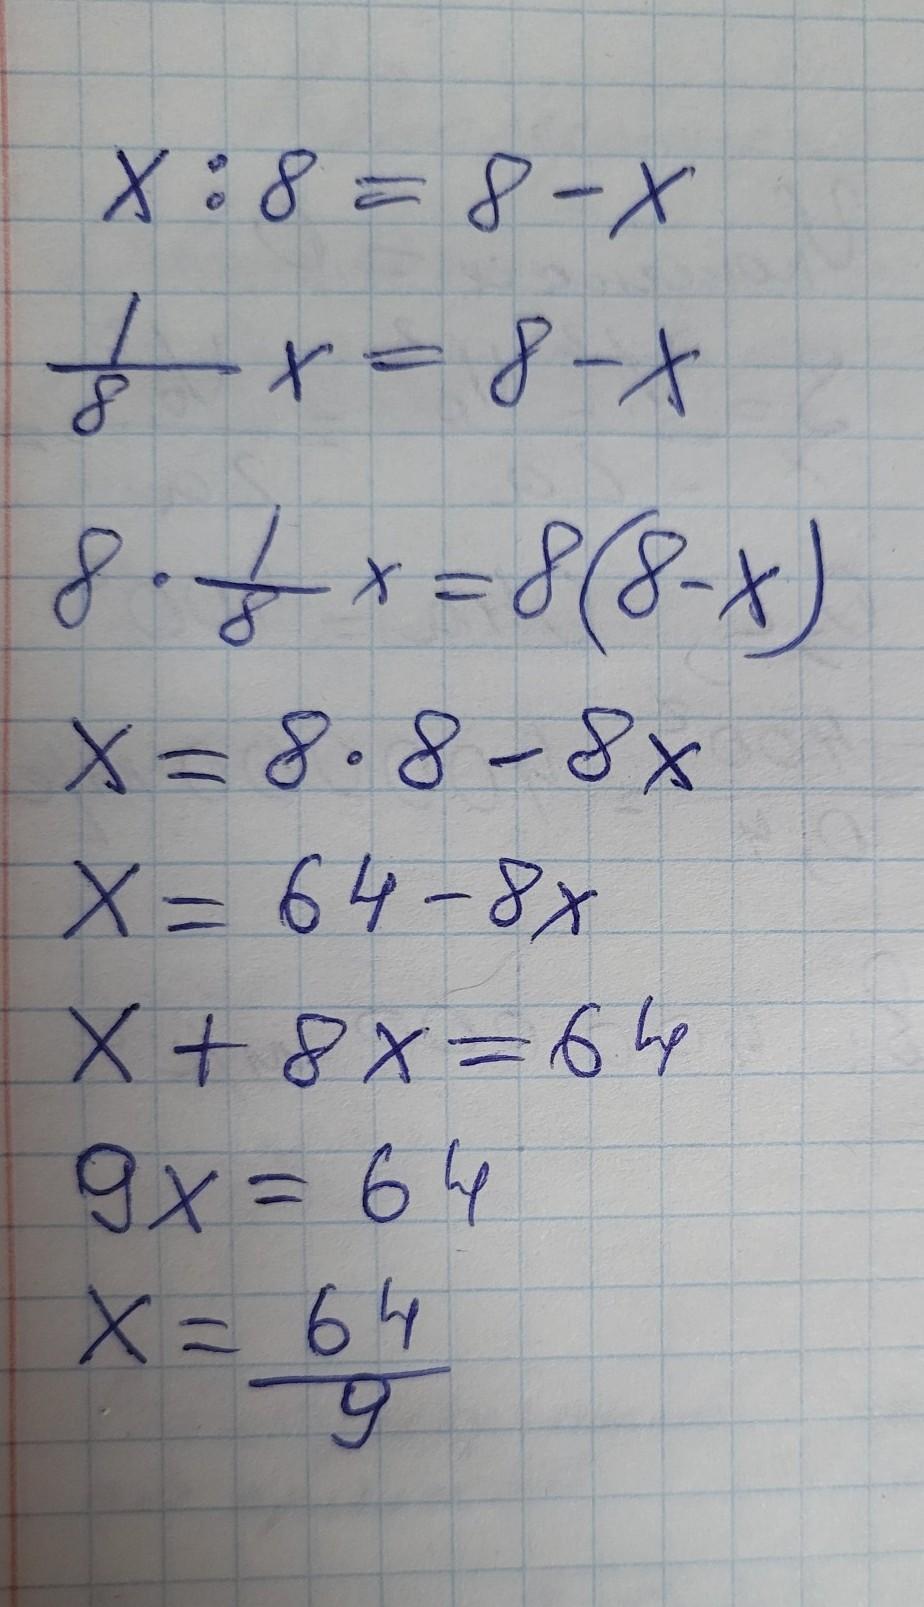 x : 8 = 8 - x
1/8 x = 8 - x
8 · 1/8 x = 8(8 - x)
x = 8 · 8 - 8x
x = 64 - 8x
x + 8x = 64
9x = 64
x = 64/9